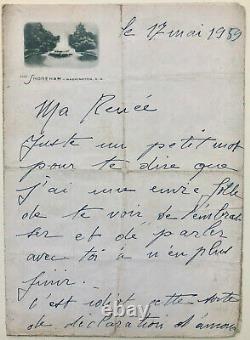 le 17 mai 1959
THE SHOREHAM - WASHINGTON, D.C.
Ma Renée
Juste un petit mot
pour te dire que
j'ai une envie folle
de te voir de t'embras
ser et de parler
avec toi à n'en plus
finir.
C'est idiot cette sorte
de déclaration d'amour